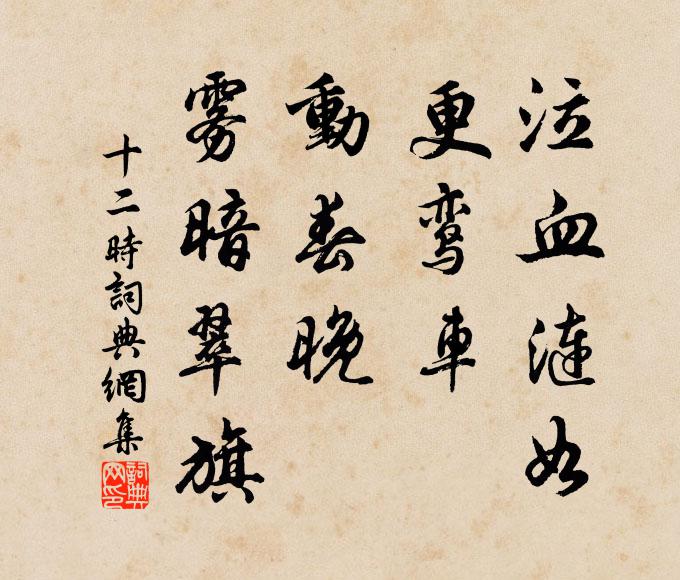 泣血漣如
更鸾車
動春晚
雾暗翠旗
十二時詞典網集
詞典
网印